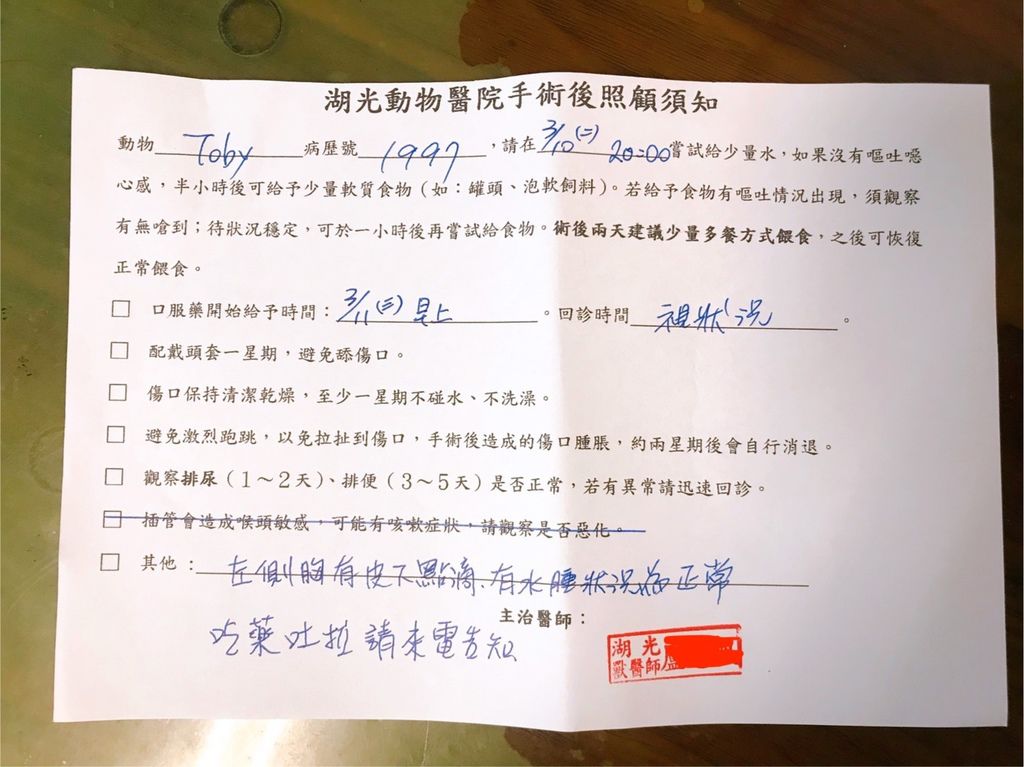 湖光動物醫院手術後照顧須知
動物 Toby 病歷號 1997 ,請在 3/10(二) 20:00 嘗試給少量水,如果沒有嘔吐噁
心感,半小時後可給予少量軟質食物(如:罐頭、泡軟飼料)。若給予食物有嘔吐情況出現,須觀察
有無嗆到;待狀況穩定,可於一小時後再嘗試給食物。術後兩天建議少量多餐方式餵食,之後可恢復
正常餵食。
□ 口服藥開始給予時間: 3/11(三) 早上 。回診時間 視狀況 。
□ 配戴頭套一星期,避免舔傷口。
□ 傷口保持清潔乾燥,至少一星期不碰水、不洗澡。
□ 避免激烈跑跳,以免拉扯到傷口,手術後造成的傷口腫脹,約兩星期後會自行消退。
□ 觀察排尿(1~2天)、排便(3~5天)是否正常,若有異常請迅速回診。
□ 插管會造成喉頭敏感,可能有咳嗽症狀,請觀察是否惡化。
□ 其他: 左側胸有皮下點滴、有水腫狀況為正常
主治醫師:
吃藥吐拉請來電告知
湖光
獸醫師盧